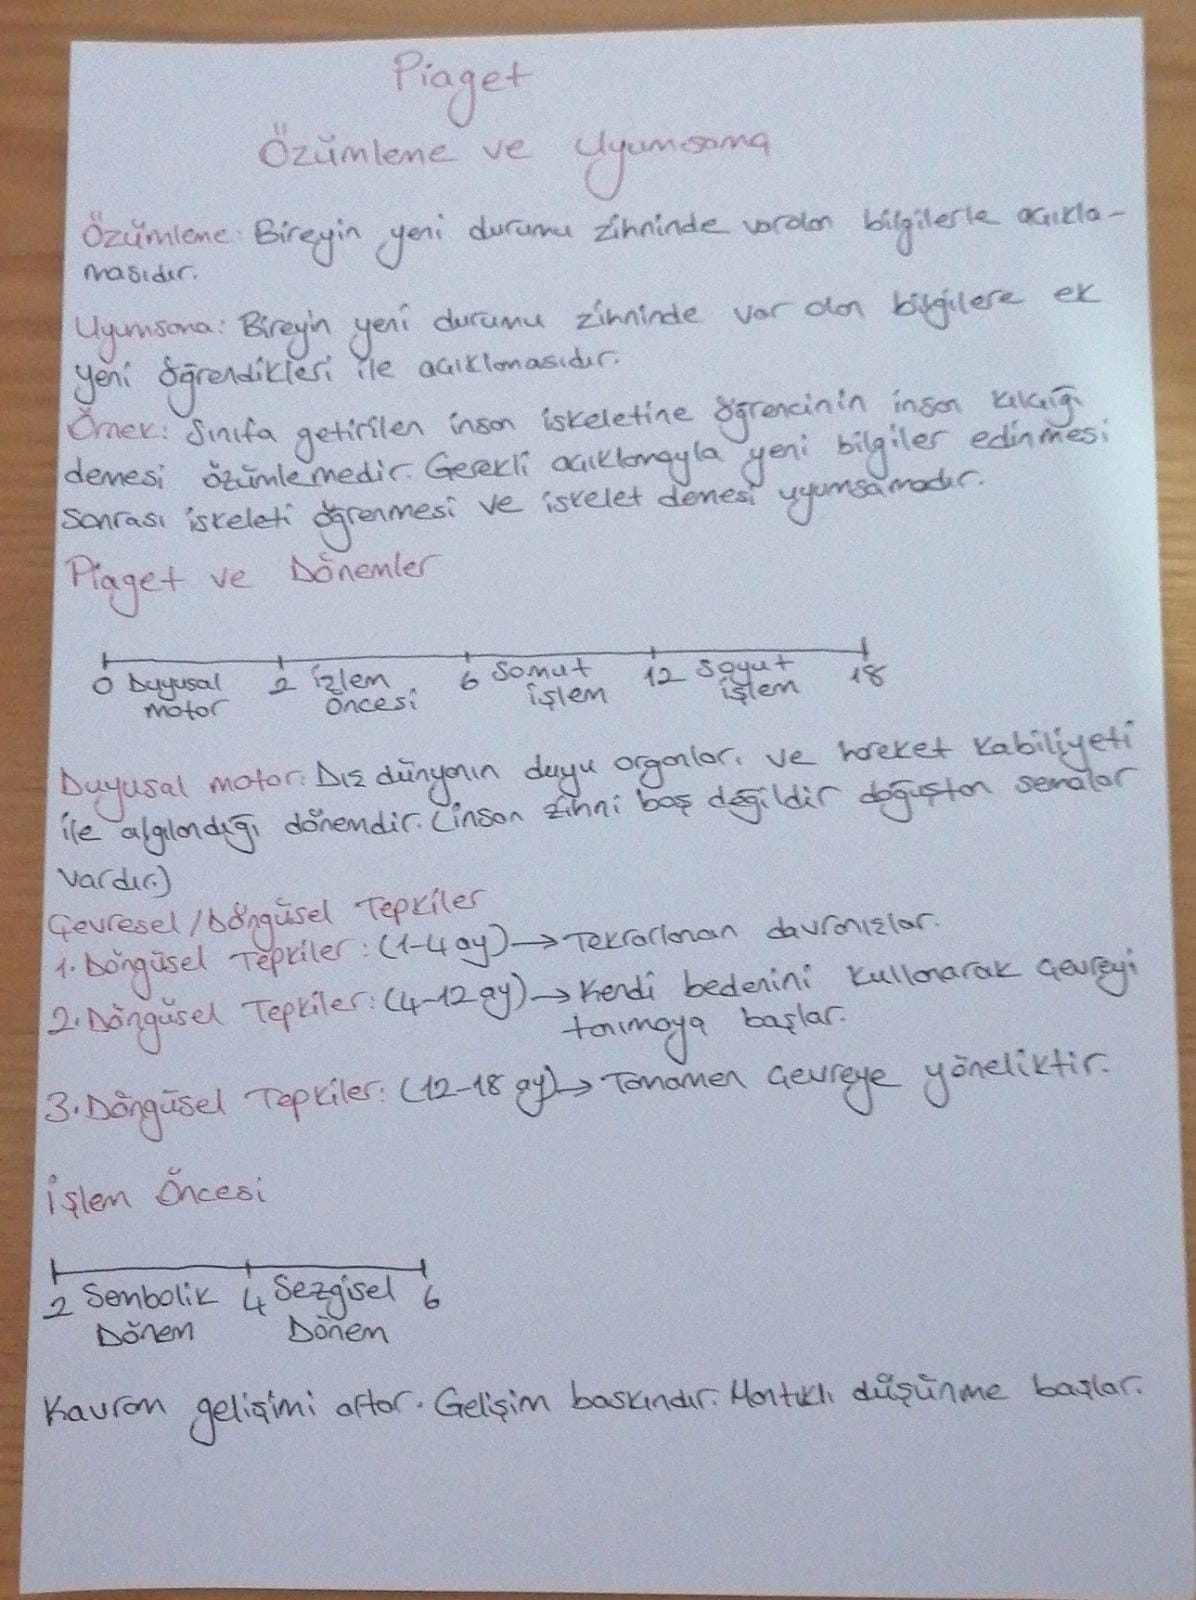 Piaget
Özümleme ve Uyumsama
Özümleme: Bireyin yeni durumu zihninde varolan bilgilerle açıkla-
masıdır.
Uyumsama: Bireyin yeni durumu zihninde var olan bilgilere ek
yeni öğrendikleri ile açıklamasıdır.
Örnek: Sınıfa getirilen insan iskeletine öğrencinin insan kılçığı
demesi özümlemedir. Gerekli açıklamayla yeni bilgiler edinmesi
sonrası iskeleti öğrenmesi ve iskelet demesi uyumsamadır.
Piaget ve Dönemler
0 Duyusal 2 İzlem 6 Somut 12 Soyut 18
motor öncesi işlem işlem
Duyusal motor: Dış dünyanın duyu organları ve hareket kabiliyeti
ile algılandığı dönemdir. (insan zihni boş değildir doğuştan şemalar
vardır.)
Çevresel/Döngüsel Tepkiler
1. Döngüsel Tepkiler: (1-4 ay) → Tekrarlanan davranışlar.
2. Döngüsel Tepkiler: (4-12 ay) → Kendi bedenini kullanarak çevreyi
tanımaya başlar.
3. Döngüsel Tepkiler: (12-18 ay) → Tamamen çevreye yöneliktir.
İşlem Öncesi
2 Sembolik 4 Sezgisel 6
Dönem Dönem
Kavram gelişimi artar. Gelişim baskındır. Mantıklı düşünme başlar.